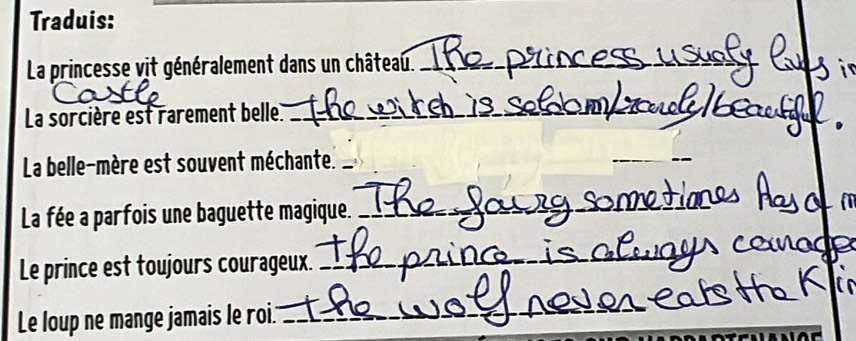 Traduis:
La princesse vit généralement dans un château. The princess usualy lives in
Castle
La sorcière est rarement belle. the witch is seldom/rarely/beautiful.
La belle-mère est souvent méchante.
La fée a parfois une baguette magique. The fairy sometimes has a m
Le prince est toujours courageux. the prince is always courage
Le loup ne mange jamais le roi. the wolf never eats the kin